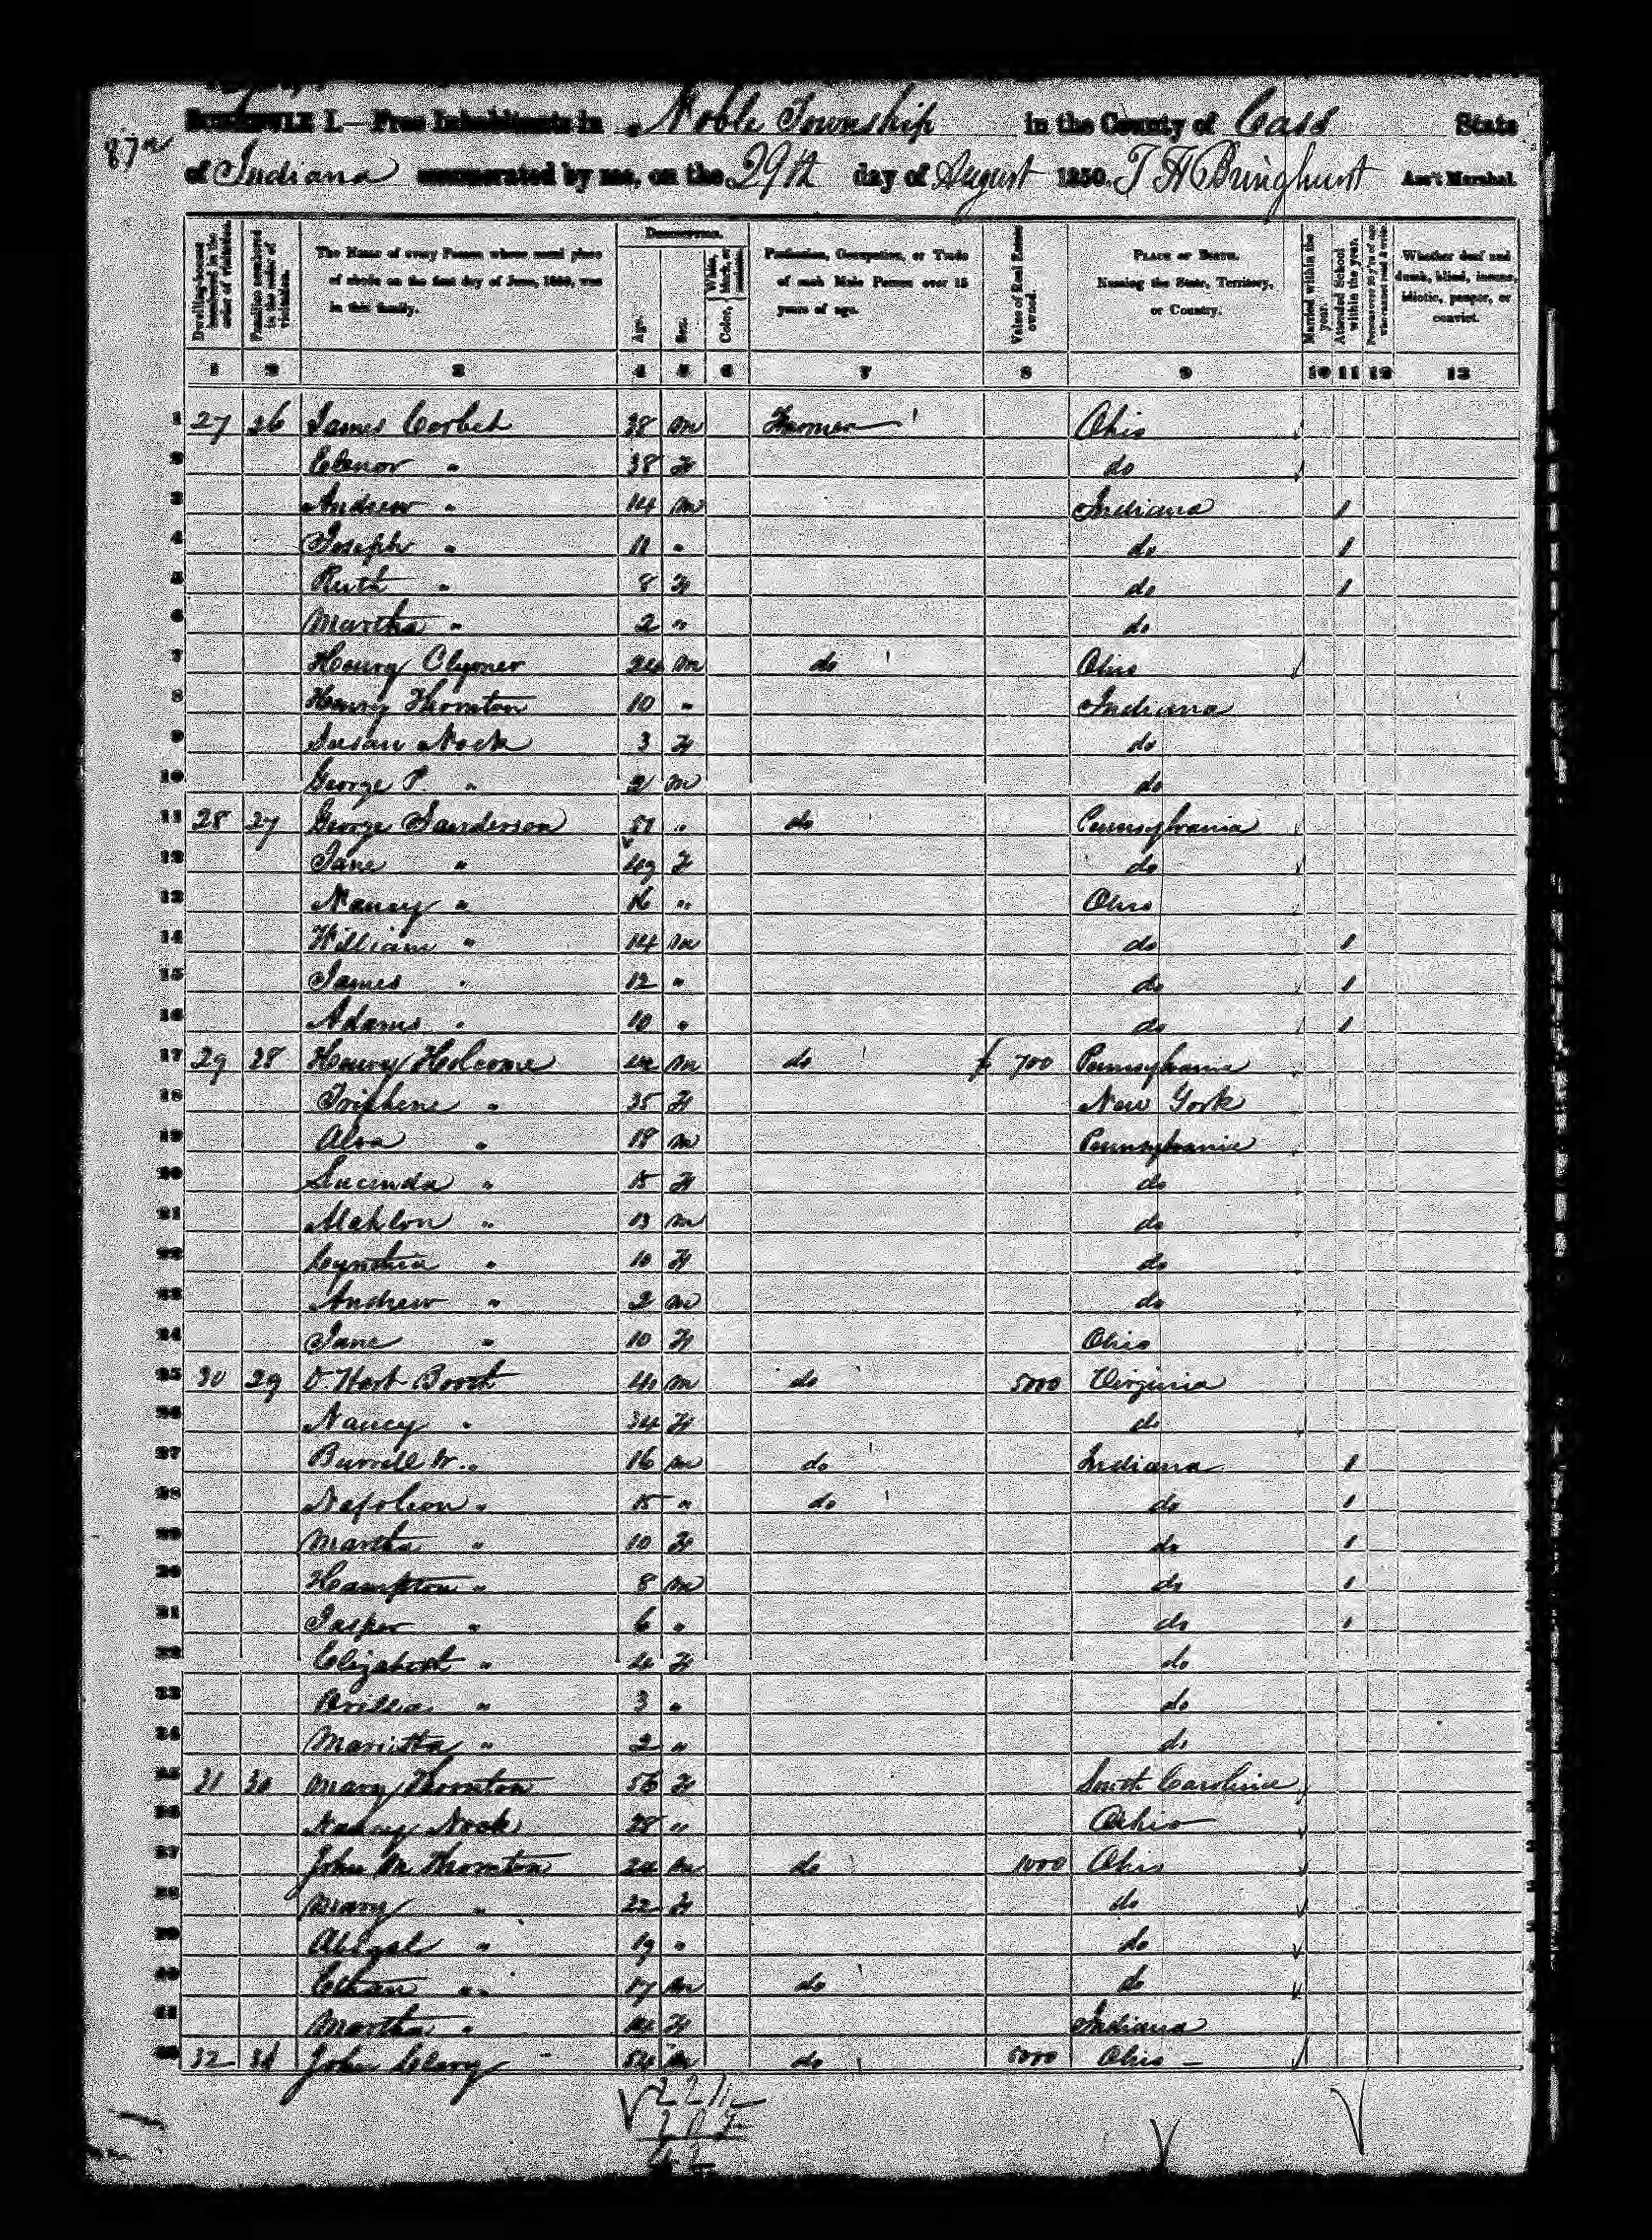 SCHEDULE I.—Free Inhabitants in Noble Township in the County of Cass State
of Indiana enumerated by me, on the 29th day of August 1850. T H Bringhurst Ass't Marshal.
Dwelling-houses numbered in the order of visitation.
Families numbered in the order of visitation.
The Name of every Person whose usual place of abode on the first day of June, 1850, was in this family.
DESCRIPTION.
Age.
Sex.
Color, White, black, or mulatto.
Profession, Occupation, or Trade of each Male Person over 15 years of age.
Value of Real Estate owned.
PLACE OF BIRTH. Naming the State, Territory, or Country.
Married within the year.
Attended School within the year.
Persons over 20 y'rs of age who cannot read & write.
Whether deaf and dumb, blind, insane, idiotic, pauper, or convict.
1 2 3 4 5 6 7 8 9 10 11 12 13
1 27 26 James Corbet 38 m Farmer Ohio
2 Elenor " 38 F do
3 Andrew " 14 m Indiana 1
4 Joseph " 11 " do 1
5 Ruth " 8 F do 1
6 Martha " 2 " do
7 Henry Clymer 24 m do Ohio
8 Henry Thornton 10 " Indiana
9 Susan Nock 3 F do
10 George P. " 2 m do
11 28 27 George Sanderson 51 " do Pennsylvania
12 Jane " 49 F do
13 Nancy " 16 " Ohio
14 William " 14 m do 1
15 James " 12 " do 1
16 Adams " 10 " do 1
17 29 28 Henry Holcome m do $ 700 Pennsylvania
18 Triphene " 35 F New York
19 Alva " 18 m Pennsylvania
20 Lucinda " 15 F do
21 Mahlon " 13 m do
22 Cynthia " 10 F do
23 Andrew " 2 m do
24 Jane " 10 F Ohio
25 30 29 D. Hart Booth 40 m do 5000 Virginia
26 Nancy " 34 F do
27 Burrell W. " 16 m do Indiana 1
28 Napoleon " 15 " do do 1
29 Martha " 10 F do 1
30 Hampton " 8 m do 1
31 Jasper " 6 " do 1
32 Elizabeth " 4 F do
33 Orilla " 3 " do
34 Marietta " 2 " do
35 31 30 Mary Thornton 56 F South Carolina
36 Nancy Nock 28 " Ohio
37 John M Thornton 24 m do 1000 Ohio
38 Mary " 22 F do
39 Abigal " 19 " do
40 Ethan " 17 m do do
41 Martha " 14 F Indiana
42 32 31 John Clery 54 m do 5000 Ohio
22 m
20 F
42